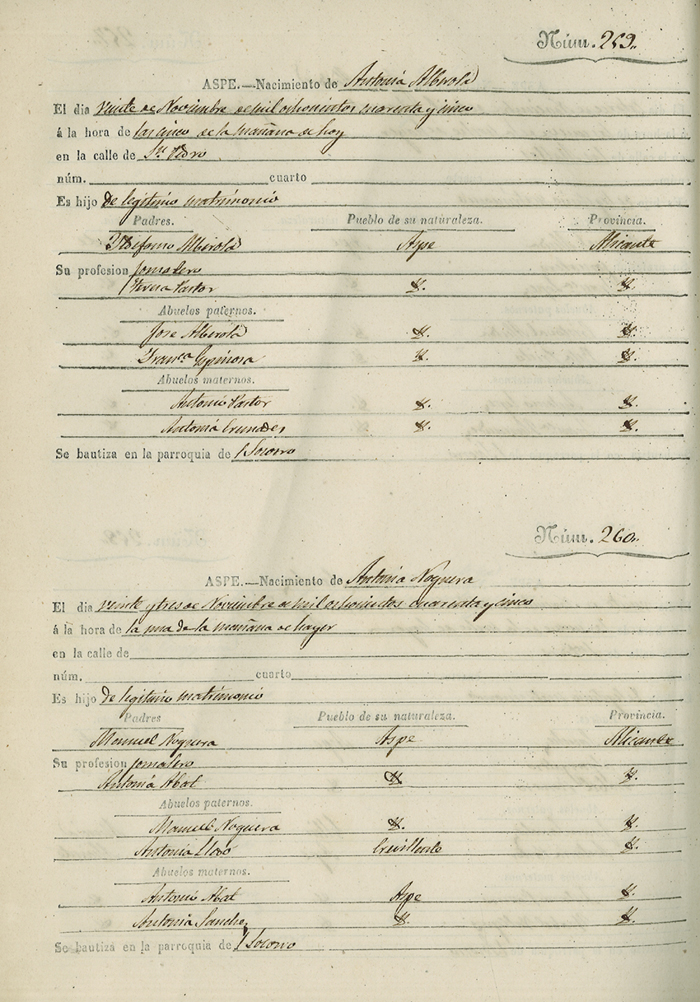 Núm. 259.
ASPE.—Nacimiento de Antonia Alberola
El dia veinte de Noviembre de mil ochocientos cuarenta y cinco
á la hora de las cinco de la mañana de hoy
en la calle de Sn. Pedro
núm. cuarto
Es hijo de legitimo matrimonio
Padres. Pueblo de su naturaleza. Provincia.
Yldefonso Alberola Aspe Alicante
Su profesion jornalero
Teresa Pastor
Abuelos paternos.
Jose Alberola
Franca Espinosa
Abuelos maternos.
Antonio Pastor
Antonia
Se bautiza en la parroquia de l Socorro
Núm. 260.
ASPE.—Nacimiento de Antonia Noguera
El dia veinte y tres de Noviembre de mil ochocientos cuarenta y cinco
á la hora de la una de la mañana de hayer
en la calle de
núm. cuarto
Es hijo de legitimo matrimonio
Padres Pueblo de su naturaleza. Provincia.
Manuel Noguera Aspe Alicante
Su profesion jornalero
Antonia Abat
Abuelos paternos.
Manuel Noguera
Antonia Crevillente
Abuelos maternos.
Antonio Abat Aspe
Antonia Sanchez
Se bautiza en la parroquia de l Socorro